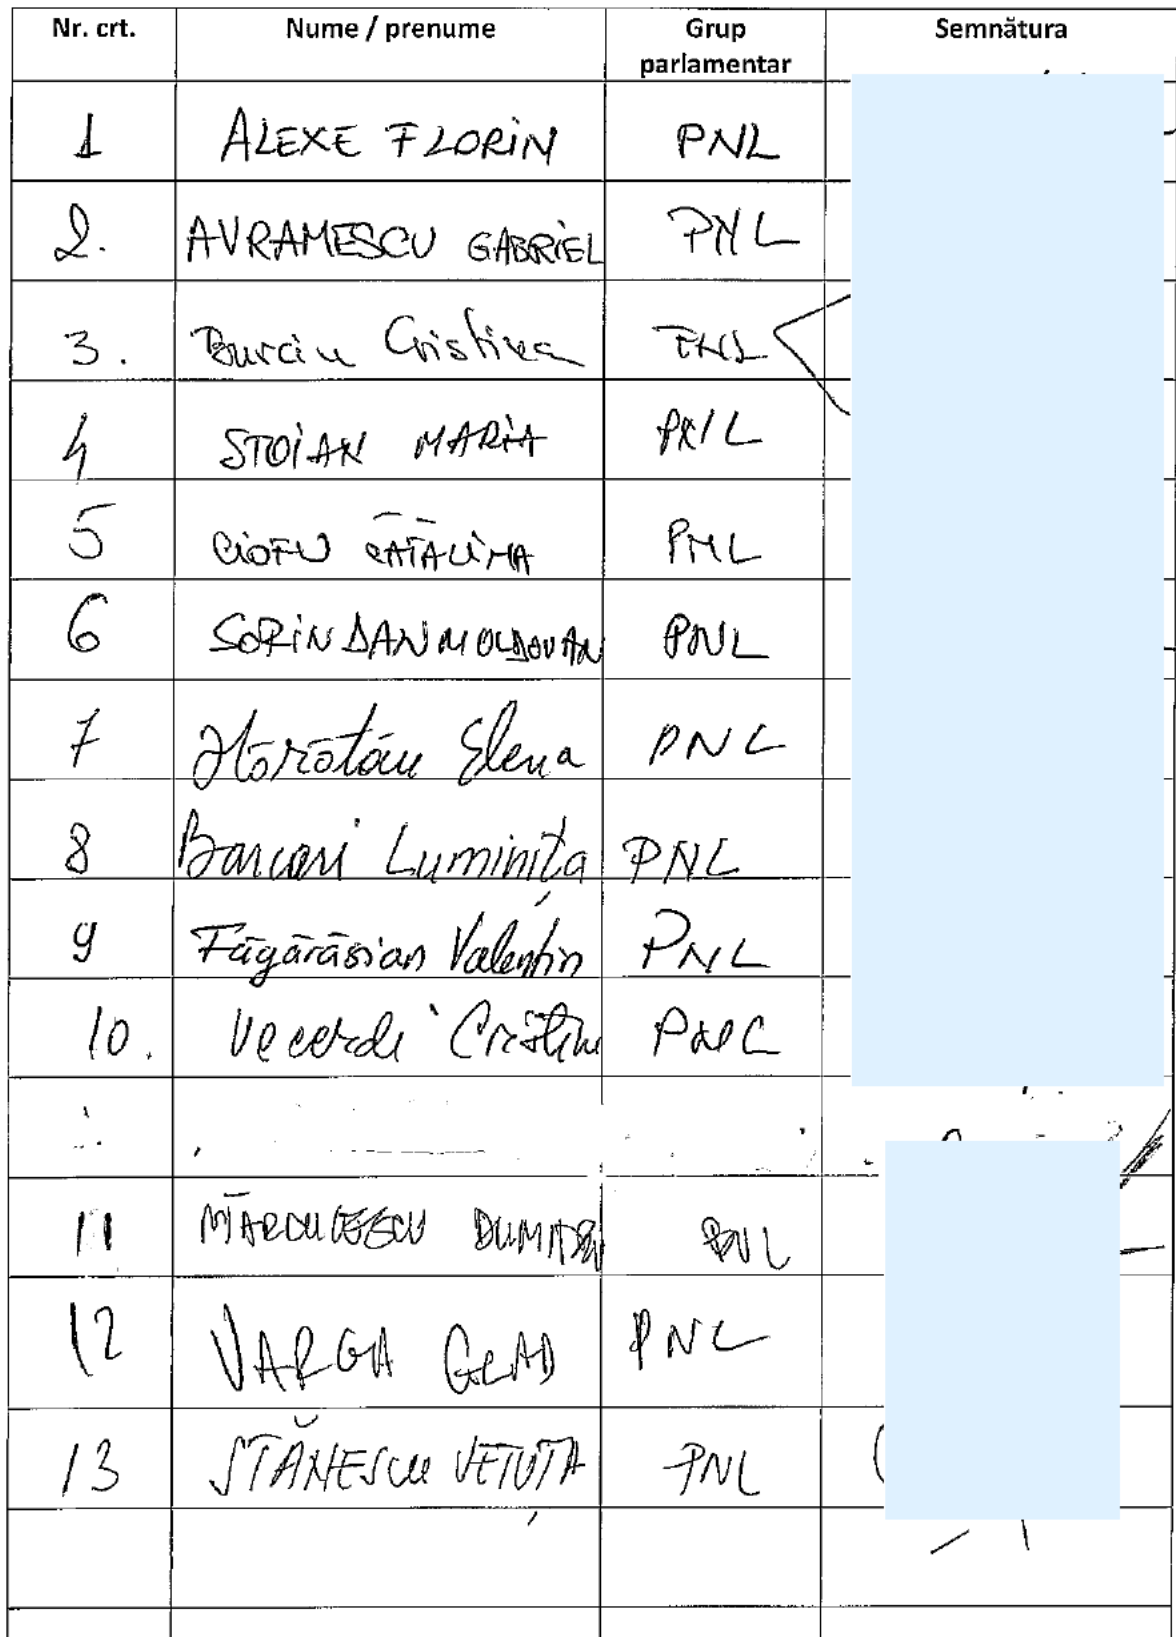 Nr. crt. Nume / prenume Grup parlamentar Semnătura
1 ALEXE FLORIN PNL
2. AVRAMESCU GABRIEL PNL
3. Burciu Cristina PNL
4 STOIAN MARIA PNL
5 CIOFU CĂTĂLINA PNL
6 SORIN DAN MOLDOVAN PNL
7 Hărătău Elena PNL
8 Barcari Luminița PNL
9 Făgărășian Valentin PNL
10. Vecerdi Cristina PNL
11 MĂRCULESCU DUMITRU PNL
12 VARGA GLAD PNL
13 STĂNESCU VETUȚA PNL